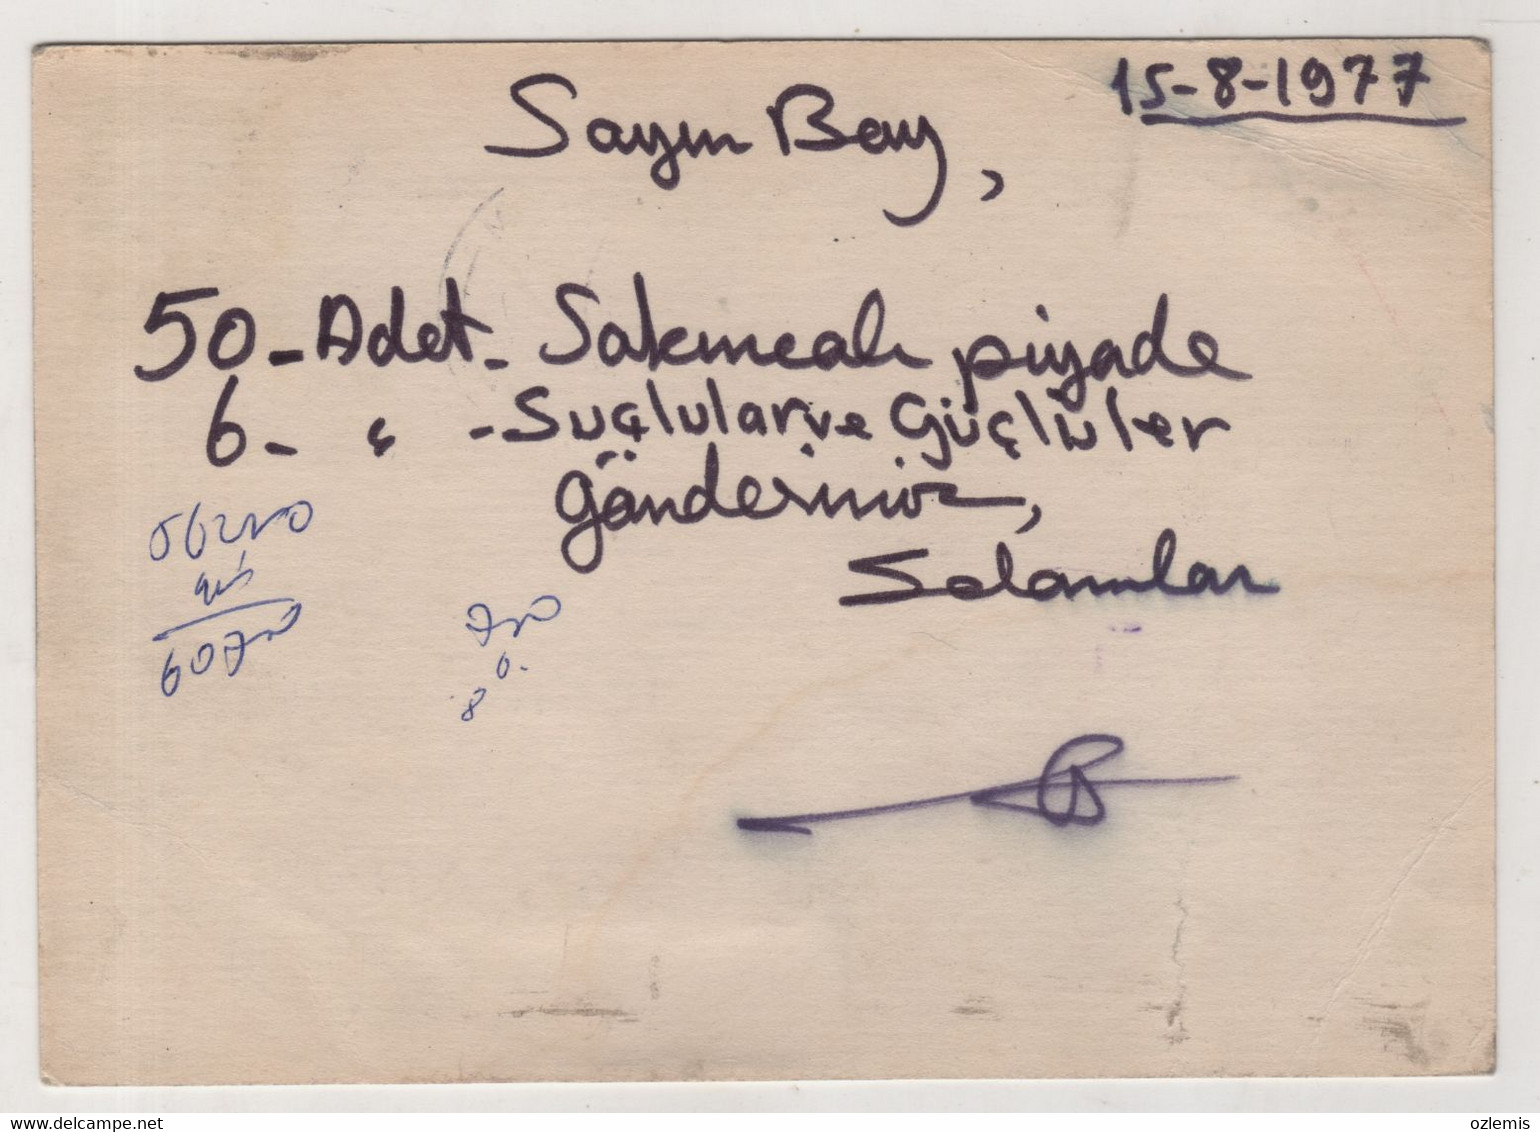 15-8-1977
Sayın Bay,
50 - Adet - Sakıncalı piyade
6 - " - Suçlular ve Güçlüler
gönderiniz,
Selamlar
delcampe.net
ozlemis